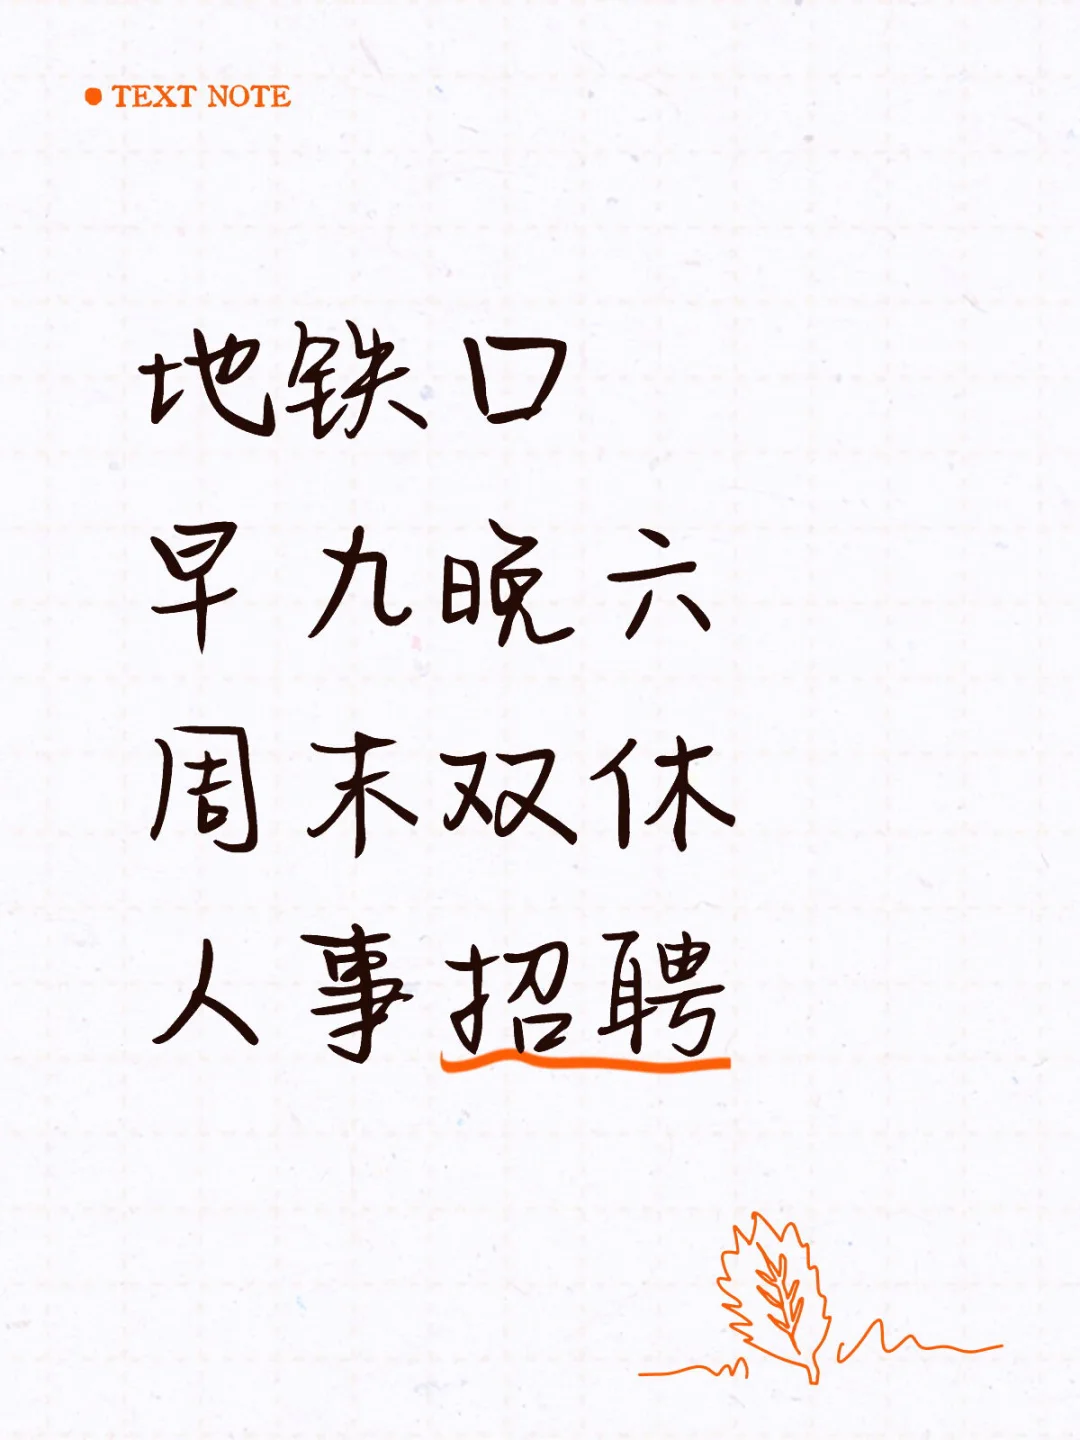 TEXT NOTE
地铁口
早九晚六
周末双休
人事招聘